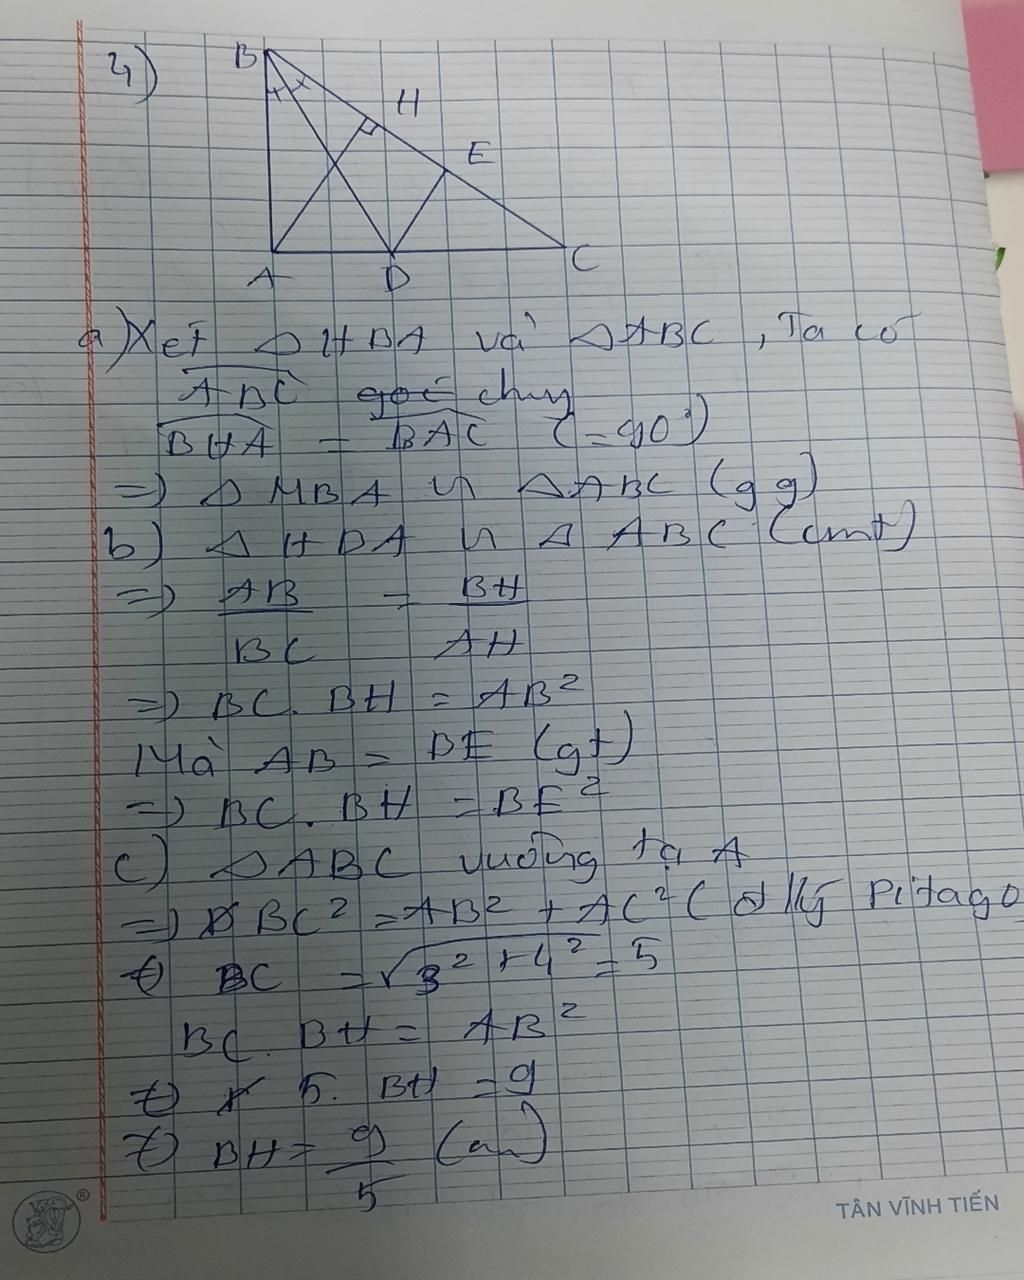 4)
B
H
E
A D C
a) Xét △HBA và △ABC, Ta có
ABC góc chung
BHA = BAC (=90°)
=> △HBA ∽ △ABC (g g)
b) △HBA ∽ △ABC (cmt)
=> AB/BC = BH/AH
=> BC. BH = AB²
Mà AB = BE (gt)
=> BC. BH = BE²
c) △ABC vuông tạ A
=> BC² = AB² + AC² (đ lý Pitago
BC = √3² + 4² = 5
BC. BH = AB²
5. BH = 9
BH = 9/5 (cm)
®
TÂN VĨNH TIẾN